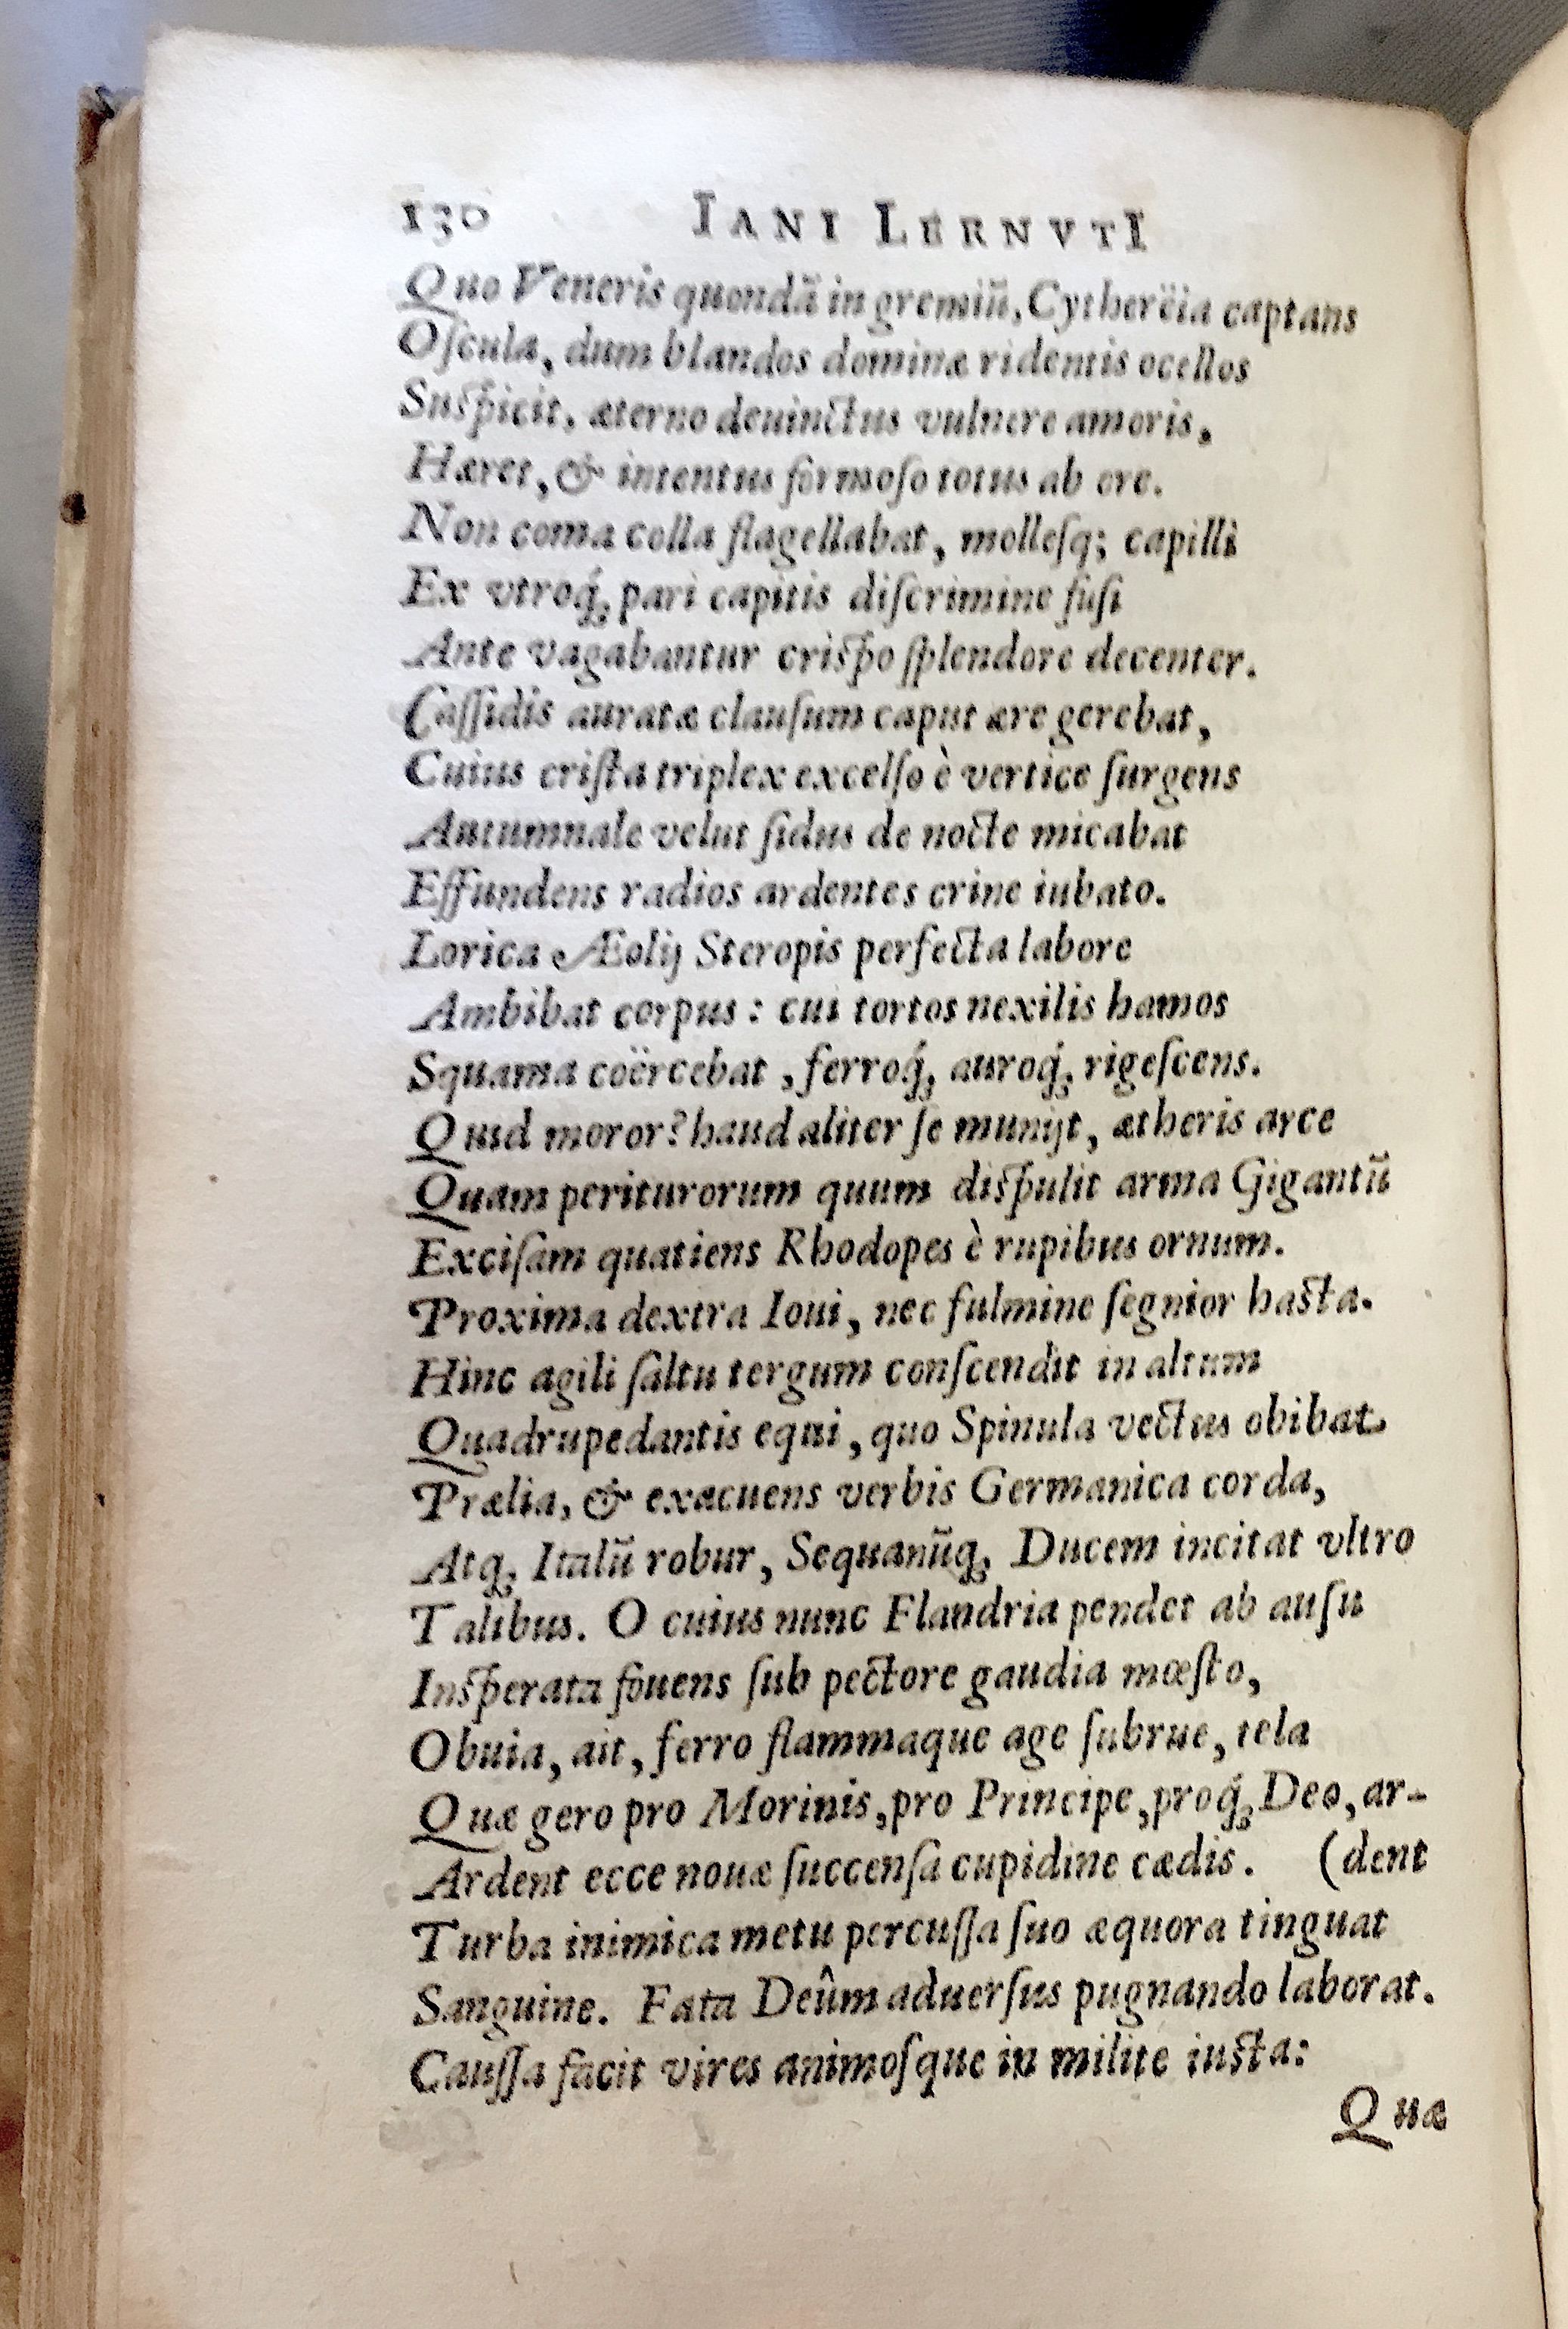 130 IANI LERNVTI
Quo Veneris quondã in gremiũ, Cytherëia captans
Oſcula, dum blandos dominæ ridentis ocellos
Suſpicit, æterno deuinctus vulnere amoris,
Hæret, & intentus formoſo totus ab ore.
Non coma colla flagellabat, molleſq; capilli
Ex vtroq́; pari capitis diſcrimine fuſi
Ante vagabantur criſpo ſplendore decenter.
Caſſidis auratæ clauſum caput ære gerebat,
Cuius criſta triplex excelſo è vertice ſurgens
Autumnale velut ſidus de nocte micabat
Effundens radios ardentes crine iubato.
Lorica Æolij Steropis perfecta labore
Ambibat corpus: cui tortos nexilis hamos
Squama coërcebat, ferroq́; auroq́; rigeſcens.
Quid moror? haud aliter ſe munijt, ætheris arce
Quam periturorum quum diſpulit arma Gigantũ
Exciſam quatiens Rhodopes è rupibus ornum.
Proxima dextra Ioui, nec fulmine ſegnior haſta.
Hinc agili ſaltu tergum conſcendit in altum
Quadrupedantis equi, quo Spinula vectus obibat
Prælia, & exacuens verbis Germanica corda,
Atq; Italũ robur, Sequanũq; Ducem incitat vltro
Talibus. O cuius nunc Flandria pendet ab auſu
Inſperata fouens ſub pectore gaudia mœſto,
Obuia, ait, ferro flammaque age ſubrue, tela
Quæ gero pro Morinis, pro Principe, proq́; Deo, ar-
Ardent ecce nouæ ſuccenſa cupidine cædis. (dent
Turba inimica metu percuſſa ſuo æquora tinguat
Sanguine. Fata Deûm aduerſus pugnando laborat.
Cauſſa facit vires animoſque in milite iuſta:
Quæ